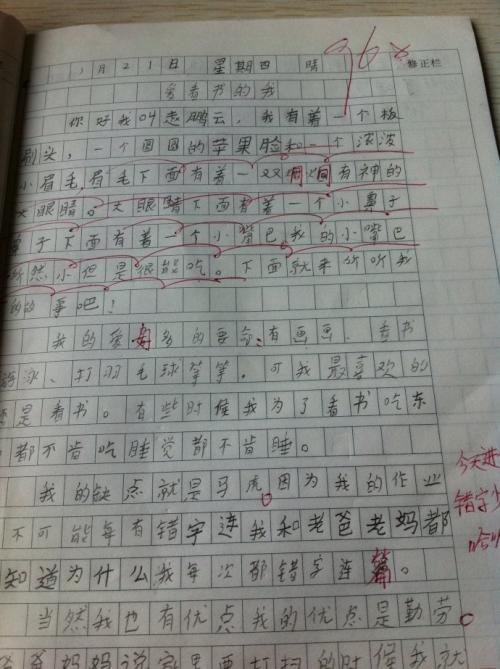 1月21日 星期四 晴
96
修正栏
爱看书的我
你好我叫赵鹏云,我有着一个板
刷头,一个圆圆的苹果脸和一个浓浓
小眉毛,眉毛下面有着一双炯炯有神的
大眼睛。大眼睛下面有着一个小鼻子
鼻子下面有着一个小嘴巴,我的小嘴巴
虽然小但是很能吃。下面就来听听我
的的事吧!
我的爱好多的要命:有画画、看书
游泳、打羽毛球等等。可我最喜欢的
还是看书。有些时候我为了看书吃东
都不肯吃睡觉都不肯睡。
我的缺点就是马虎。因为我的作业
不可能每有错字连我和老爸老妈都
知道为什么我每次都错字连篇。
当然我也有优点我的优点是勤劳。
爸妈妈说家里要打扫的时候我就
今天进
错字少